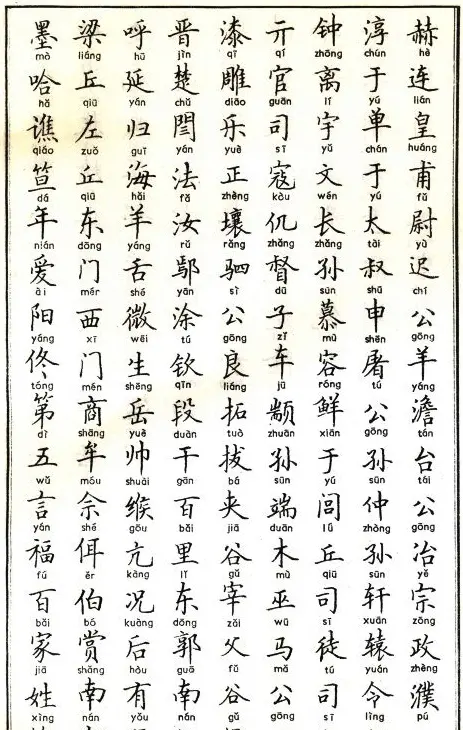 赫 hè 连 lián 皇 huáng 甫 fǔ 尉 yù 迟 chí 公 gōng 羊 yáng 澹 tán 台 tái 公 gōng 冶 yě 宗 zōng 政 zhèng 濮 pú
淳 chún 于 yú 单 chán 于 yú 太 tài 叔 shū 申 shēn 屠 tú 公 gōng 孙 sūn 仲 zhòng 孙 sūn 轩 xuān 辕 yuán 令 lìng
钟 zhōng 离 lí 宇 yǔ 文 wén 长 zhǎng 孙 sūn 慕 mù 容 róng 鲜 xiān 于 yú 闾 lǘ 丘 qiū 司 sī 徒 tú 司 sī
亓 qí 官 guān 司 sī 寇 kòu 仉 zhǎng 督 dū 子 zǐ 车 jū 颛 zhuān 孙 sūn 端 duān 木 mù 巫 wū 马 mǎ 公 gōng
漆 qī 雕 diāo 乐 yuè 正 zhèng 壤 rǎng 驷 sì 公 gōng 良 liáng 拓 tuò 拔 bá 夹 jiā 谷 gǔ 宰 zǎi 父 fǔ 谷 gǔ
晋 jìn 楚 chǔ 闫 yán 法 fǎ 汝 rǔ 鄢 yān 涂 tú 钦 qīn 段 duàn 干 gān 百 bǎi 里 lǐ 东 dōng 郭 guō 南 nán
呼 hū 延 yán 归 guī 海 hǎi 羊 yáng 舌 shé 微 wēi 生 shēng 岳 yuè 帅 shuài 缑 gōu 亢 kàng 况 kuàng 后 hòu 有 yǒu
梁 liáng 丘 qiū 左 zuǒ 丘 qiū 东 dōng 门 mén 西 xī 门 mén 商 shāng 牟 móu 佘 shé 佴 ěr 伯 bó 赏 shǎng 南 nán
墨 mò 哈 hǎ 谯 qiáo 笪 dá 年 nián 爱 ài 阳 yáng 佟 tóng 第 dì 五 wǔ 言 yán 福 fú 百 bǎi 家 jiā 姓 xìng